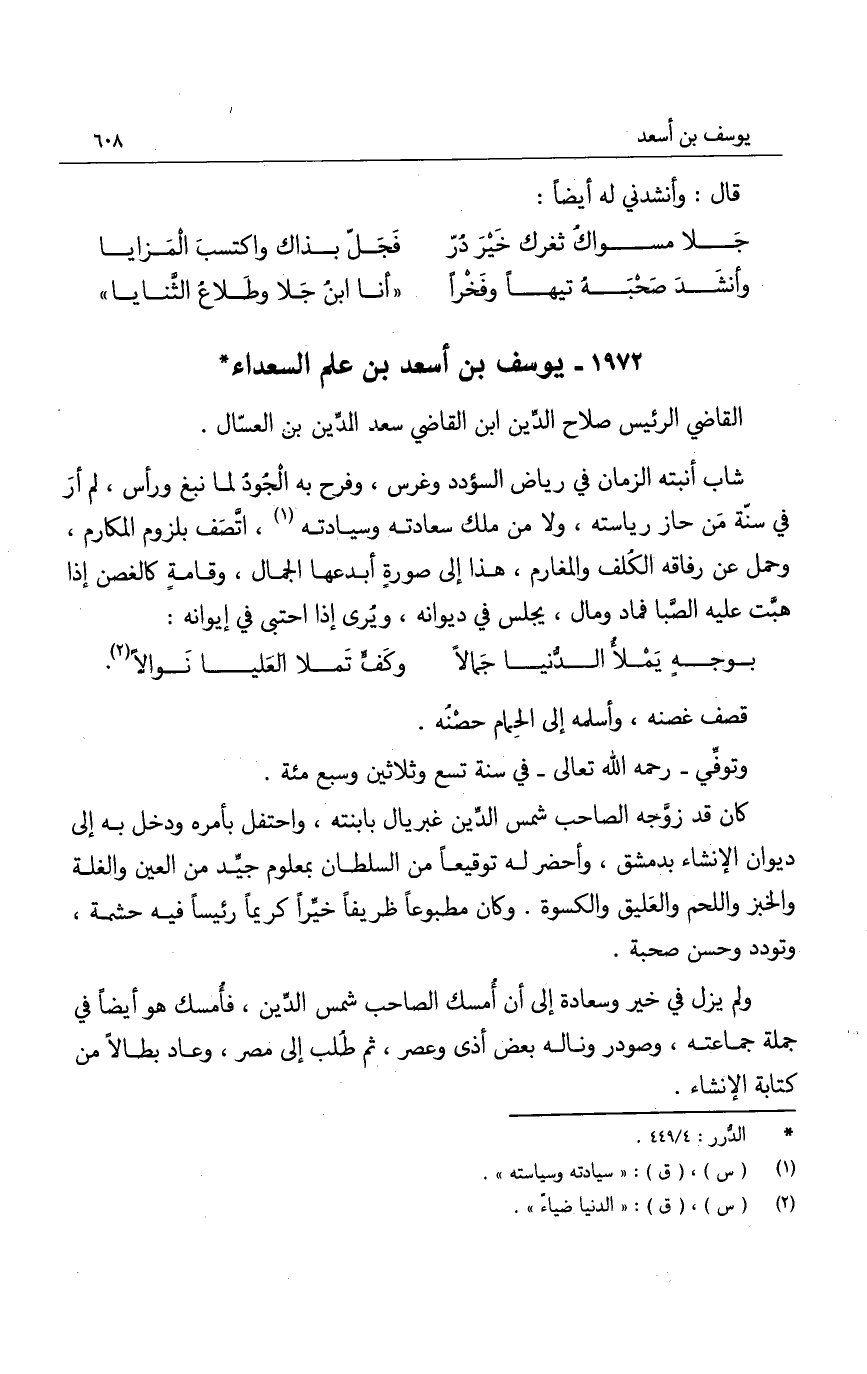 يوسف بن أسعد ٦٠٨
قال : وأنشدني له أيضاً :
جَـــلا مســـواكُ ثغرك خَيْرَ دُرّ فَجَـلّ بـــذاك واكتسبَ الْمَـزايــا
وأنشَـــدَ صَحْبَـــهُ تيهـــاً وفَخْراً «أنــا ابنُ جَـلا وطَـلاعُ الثَّنـايـا»
١٩٧٢ ـ يوسف بن أسعد بن علم السعداء*
القاضي الرئيس صلاح الدِّين ابن القاضي سعد الدِّين بن العسّال .
شاب أنبته الزمان في رياض السؤدد وغرس ، وفرح به الْجُودُ لمـا نبغ ورأس ، لم أرَ
في سنّة مَن حاز رياسته ، ولا من ملك سعادتـه وسيـادتـه (١) ، اتَّصَف بلزوم المكارم ،
وحمل عن رفاقه الكُلف والمغارم ، هـذا إلى صورةٍ أبـدعهـا الجمال ، وقـامـةٍ كالغصن إذا
هبَّت عليه الصَّبا فماد ومال ، يجلس في ديوانه ، ويُرى إذا احتبى في إيوانه :
بـوجـــهٍ يَمْلأُ الــدُّنيـــا جَمالاً وكَفٍّ تَملا العَليـــا نَـوالاً(٢).
قصف غصنه ، وأسلمه إلى الحِمام حصْنُه .
وتوفِّي ـ رحمه الله تعالى ـ في سنة تسع وثلاثين وسبع مئة .
كان قد زوَّجه الصاحب شمس الدِّين غبريال بابنته ، واحتفل بأمره ودخل بـه إلى
ديوان الإنشاء بدمشق ، وأحضر لـه توقيعـاً من السلطان بمعلوم جيِّـد من العين والغلـة
والخبز واللحم والعَليق والكسوة . وكان مطبوعاً ظريفاً خيِّراً كريماً رئيساً فيـه حشمـة ،
وتودد وحسن صحبة .
ولم يزل في خير وسعادة إلى أن أُمسك الصاحب شمس الدِّين ، فأُمسك هو أيضاً في
جملة جمـاعتـه ، وصودر ونالـه بعض أذى وعصر ، ثم طُلب إلى مصر ، وعـاد بطـالاً من
كتابة الإنشاء .
* الدُّرر : ٤٤٩/٤ .
(١) ( س ) ، ( ق ) : « سيادته وسياسته » .
(٢) ( س ) ، ( ق ) : « الدنيا ضياءً » .